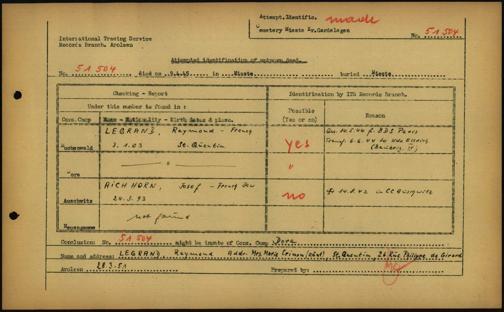 Attempt.Identific. made
International Tracing Service
Records Branch. Arolsen
Cemetery Mieste Kr.Gardelegen
No. 51 504
Attempted identification of unknown dead.
No. 51 504 died on 9.4.45 in Mieste buried Mieste
Checking - Report
Identification by ITS Records Branch.
Under this number to found in :
Possible (Yes or no)
Reason
Conc.Camp Name - Nationality - Birth date & place.
LEGRAND, Raymond - French
Buchenwald 3.1.03 St. Quentin
yes
14.5.44 f. BDS Paris
Transf. 6.6.44 to Kdo Ellrich
Dora — " —
"
AICHHORN, Josef - French Jew
Auschwitz 24.5.93
no
14.8.42 in CC Auschwitz
not found
Conclusion: No. 51 504 might be inmate of Conc. Camp Dora
Name and address: LEGRAND, Raymond Addr. Mrs. Maria St. Quentin, 26 Rue Philippe de Girard
Arolsen 28.3.51 Prepared by: